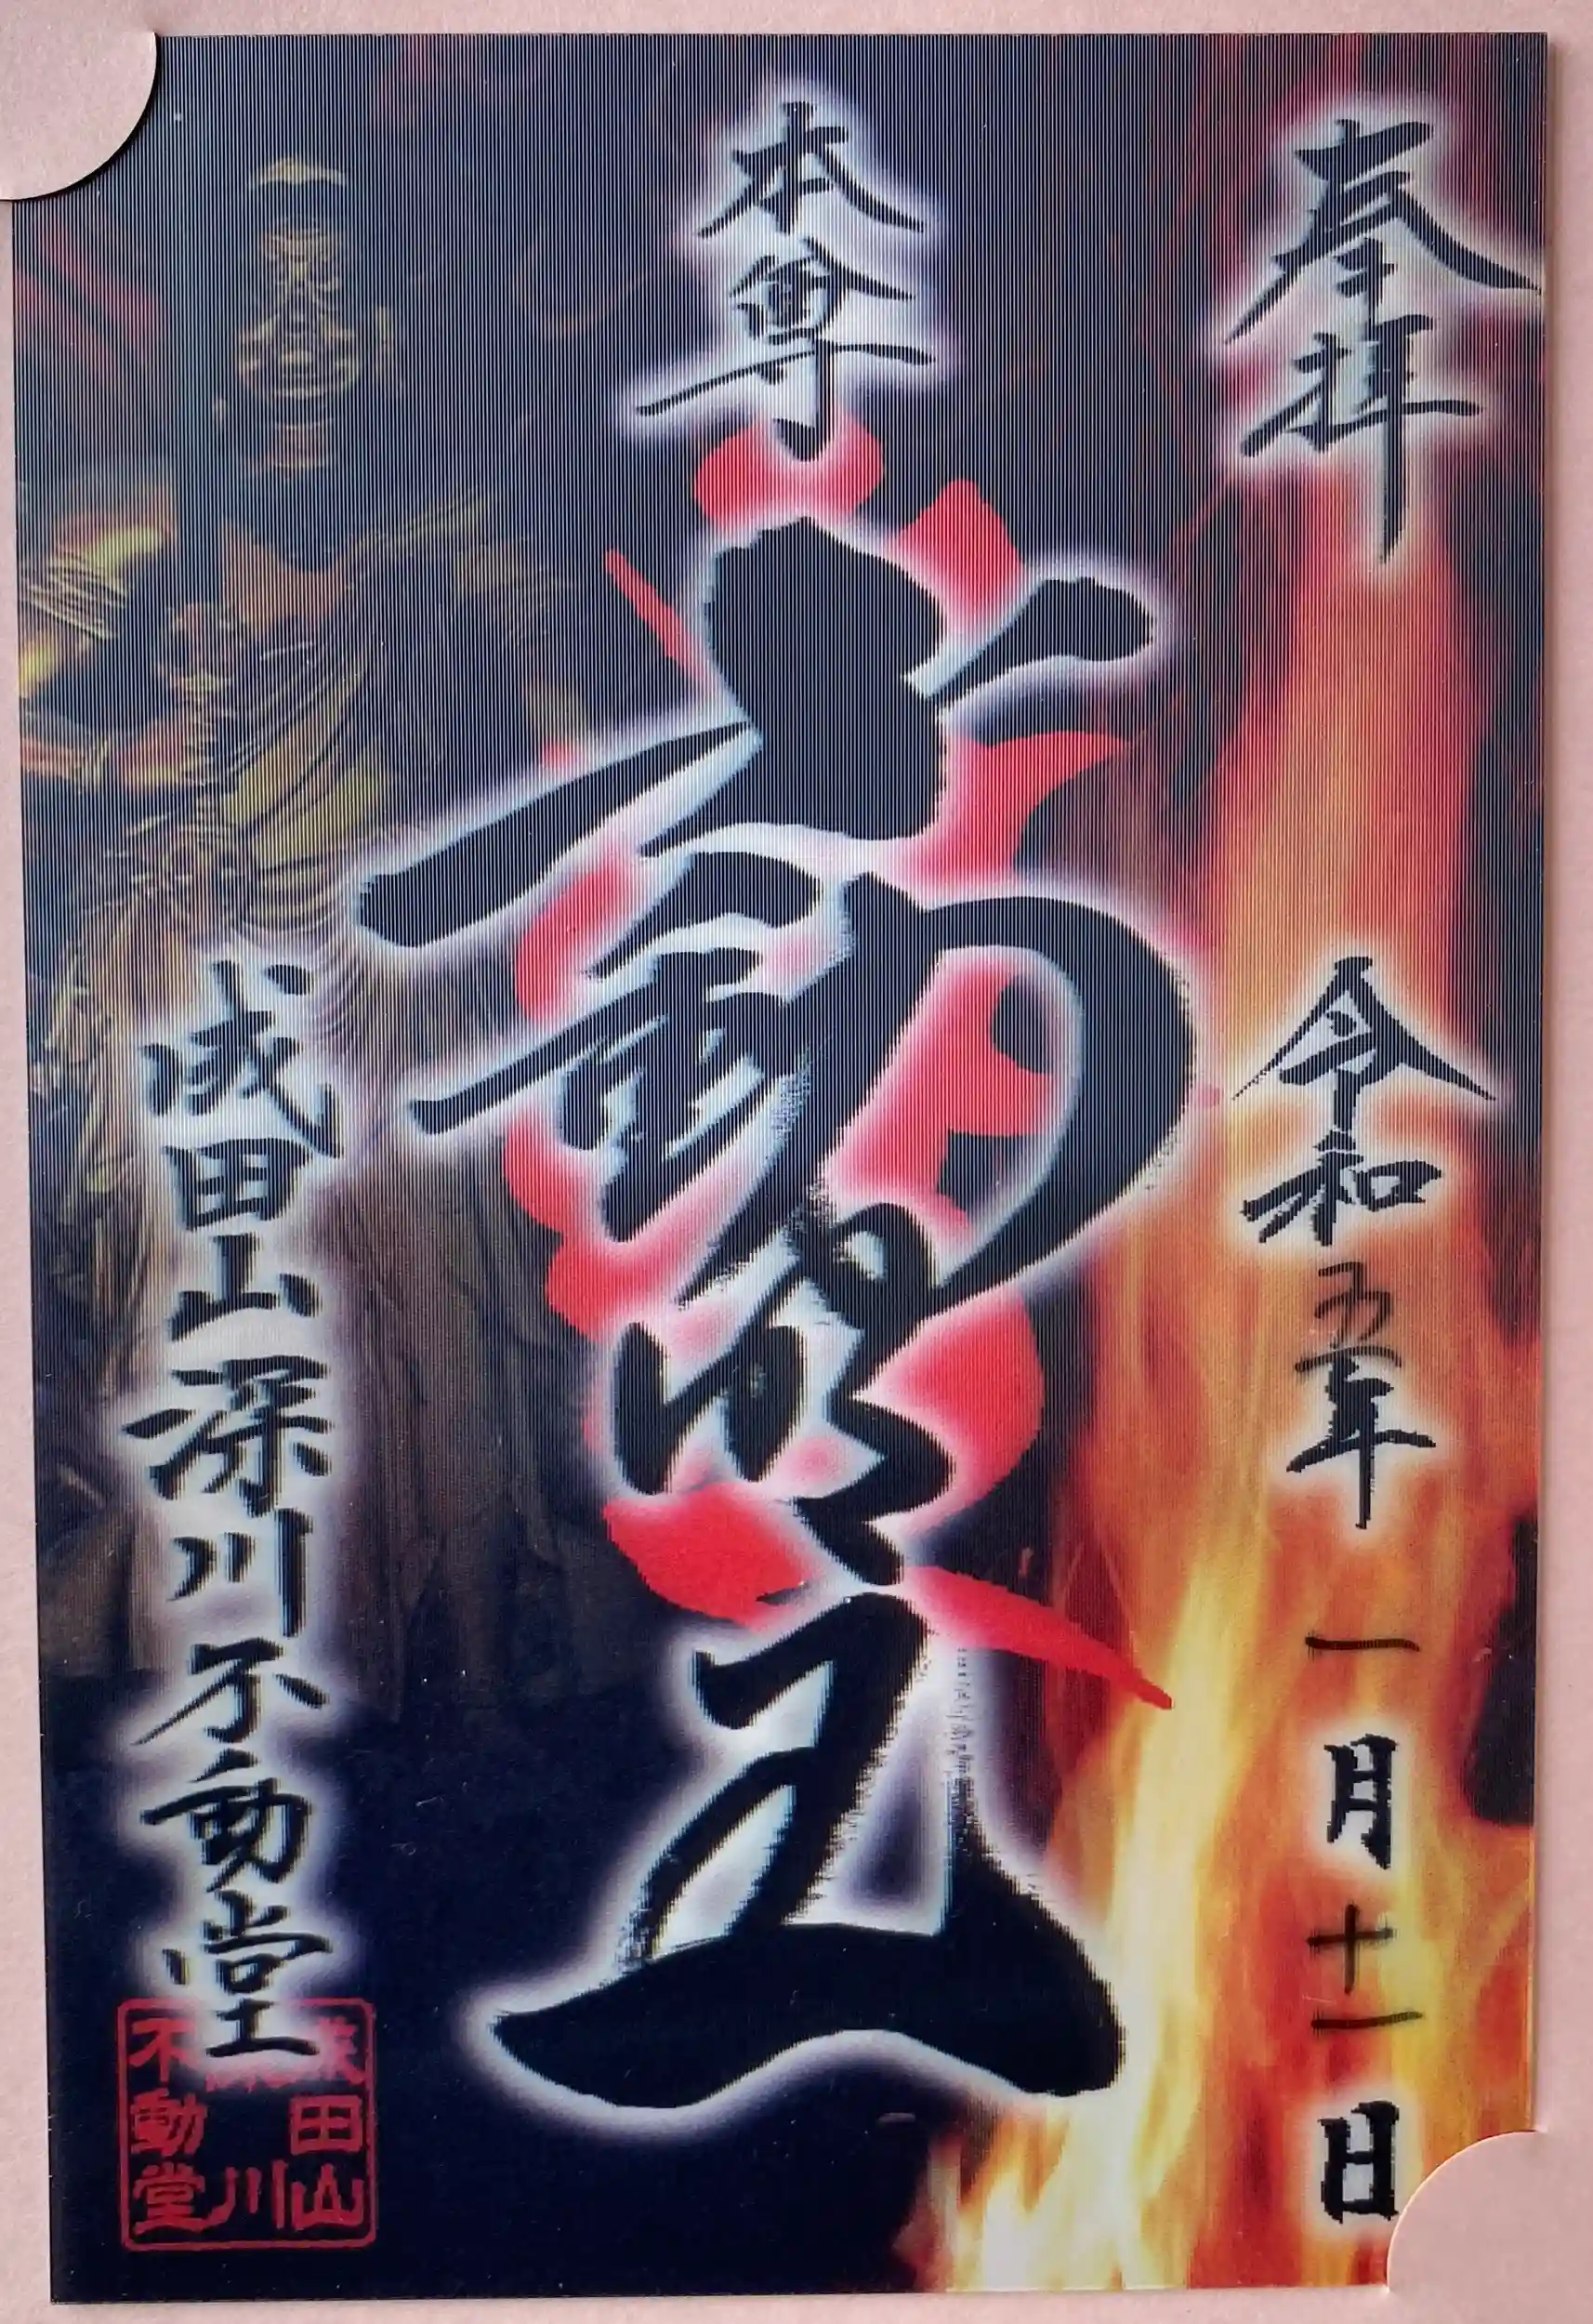 奉拝
令和五年一月十一日
本尊
不動明王
成田山深川不動堂
成田山
深川
不動堂